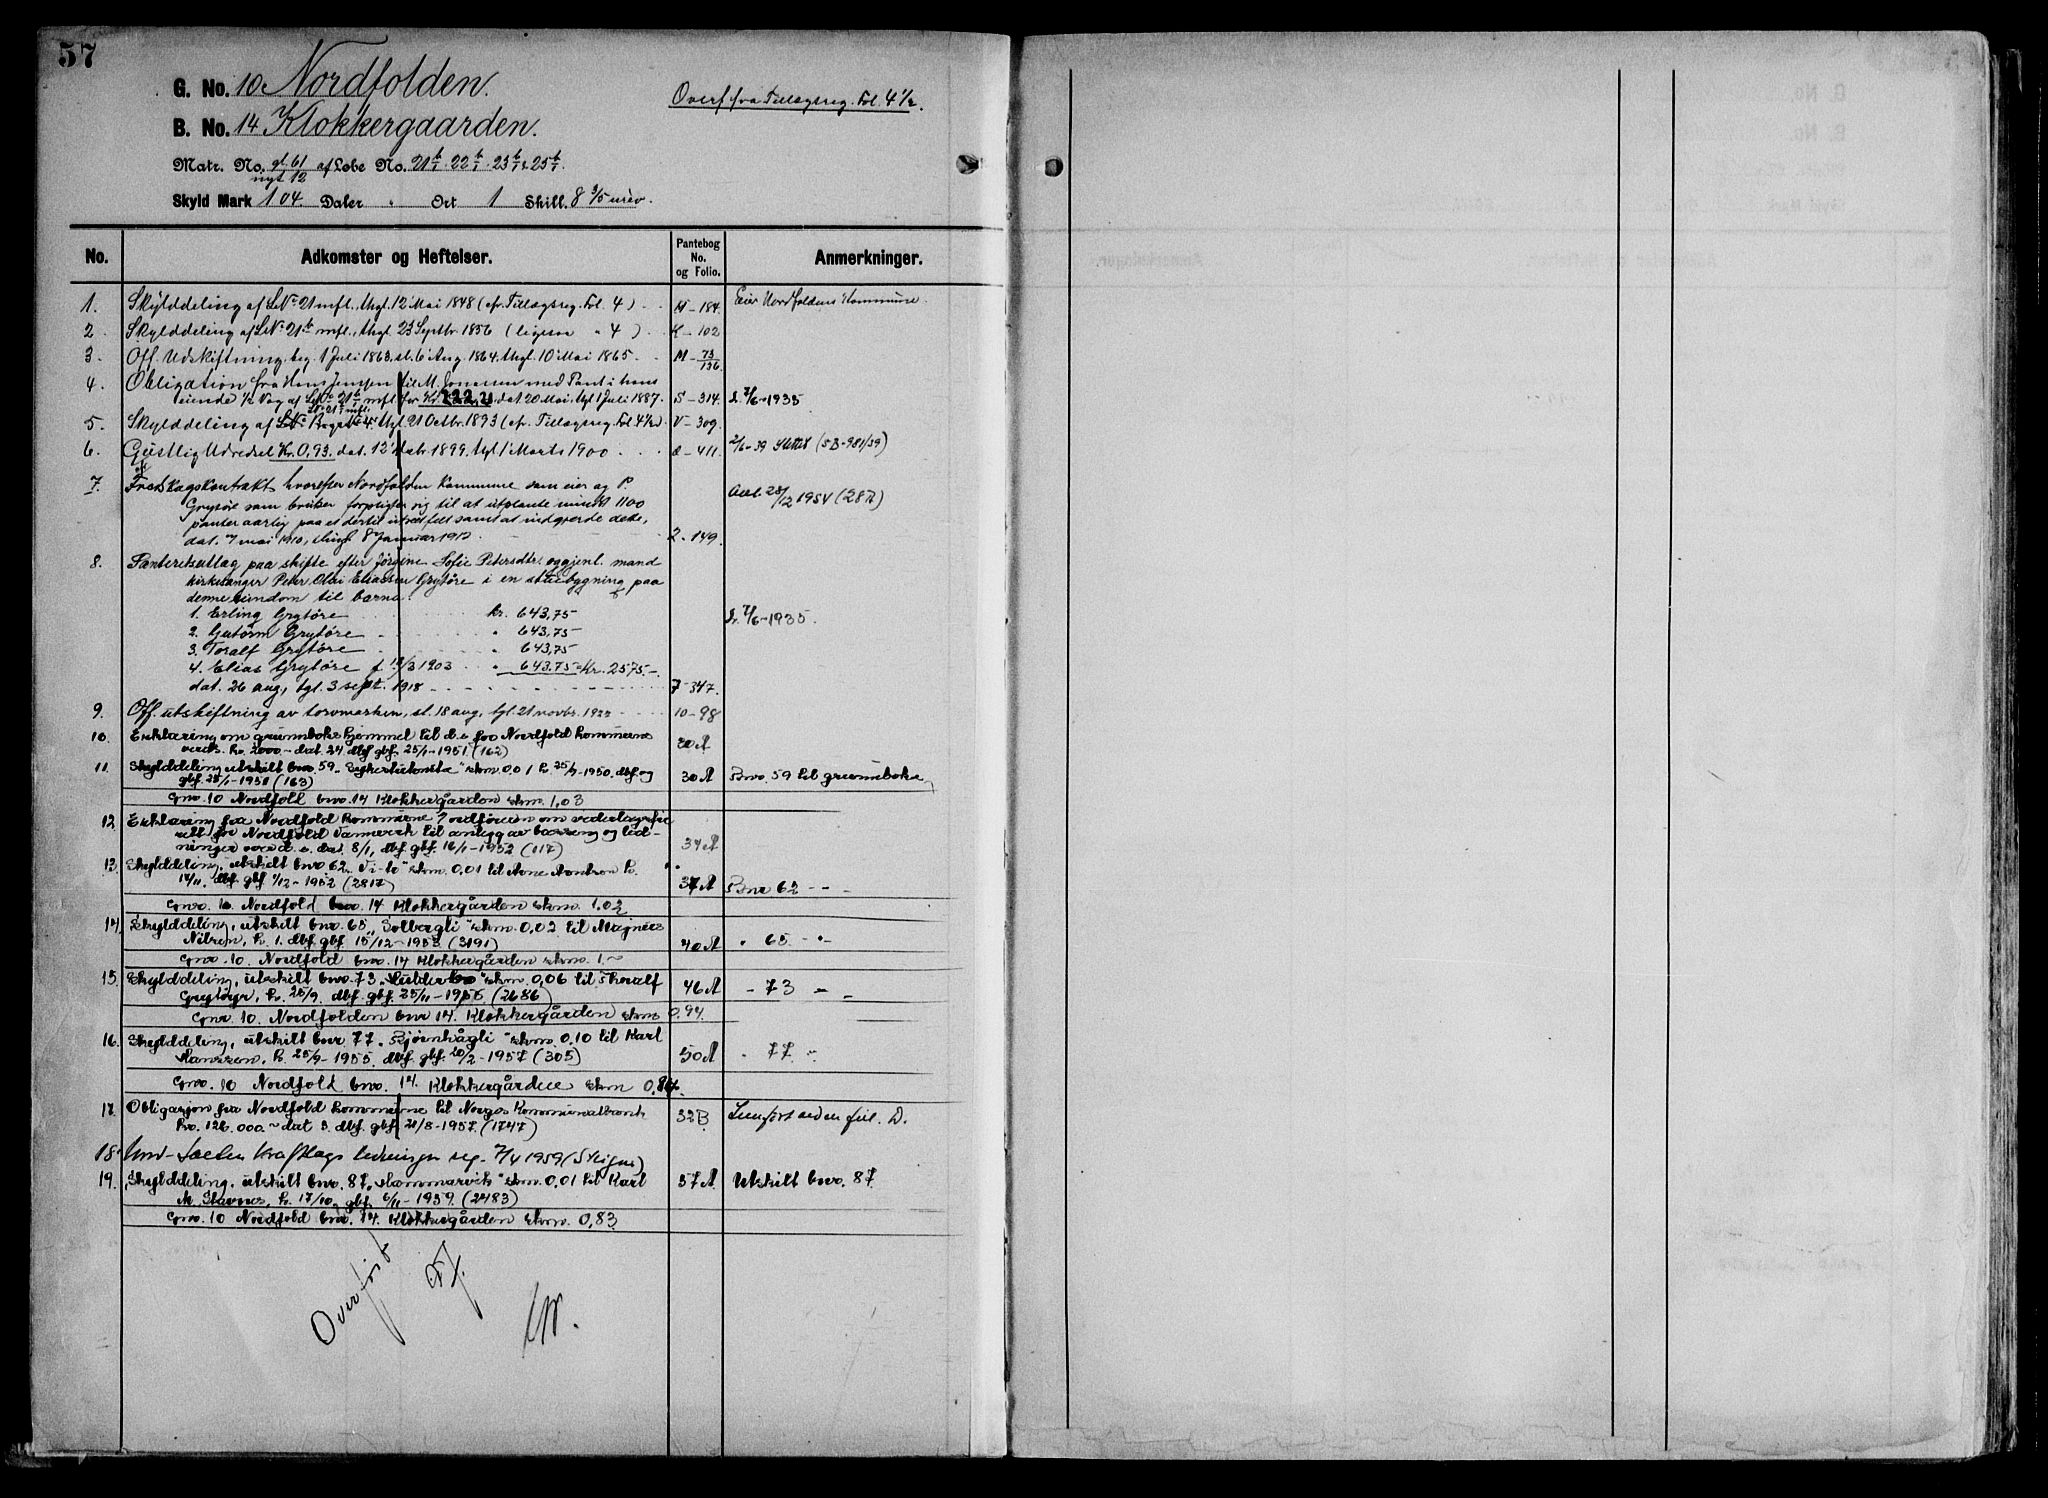 57
G. No. 10 Nordfolden.
Overf. fra Tillægsreg. Fol. 4 1/2.
B. No. 14 Klokkergaarden.
Matr. No. gl. 61 nyt 12 af Løbe No. 21 b/1 22 b/1 23 b/1 25 b/1.
Skyld Mark 1 04. Daler " Ort 1 Skill. 8 3/5 urev.
No. Adkomster og Heftelser. Pantebog No. og Folio. Anmerkninger.
1. Skylddeling af LNo 21 mfl., thgl. 12 Mai 1848 (cfr. Tillægsreg. Fol. 4) M - 184. Eier Nordfoldens Kommune.
2. Skylddeling af LNo 21 b mfl., thgl. 23 Septbr. 1856 (ligesaa " 4) K - 102
3. Off. Udskiftning, beg. 1 Juli 1863, sl. 6 Aug. 1864, thgl. 10 Mai 1865. M - 73/136.
4. Obligation fra Hans Jensen til M. Jonassen med Pant i hans
eiende 1/2 Vog af LNo 21 b mfl. for Kr. 222,21 dat 20 Mai, thgl 1 Juli 1887. S - 314. S. 7/6-1935
5. Skylddeling af LNo 21 b/1 mfl. thgl. 21 Octbr. 1893 (cfr. Tillægsreg. Fol. 4 1/2) V - 309.
6. Geistlig Udredsel Kr. 0,93. dat. 12 1899. thgl 1 Marts 1900. - 411. 2/6-39 Slettet (5B-981/39)
7. Fredskogskontrakt hvorefter Nordfolden Kommune som eier og P.
Grytöir som bruker forpligter sig til at utplante mindst 1100
planter aarlig paa et dertil utset felt samt at indgjerde dette,
dat. 7 mai 1910, thingl 8 Januar 1912 2 - 149. Avl. 28/12 1954 (2871)
8. Panteretsutlæg paa skifte efter Jørgine Sofie Petersdtr. og gjenl. mand
kirkesanger Peter Olai Eliassen Grytöre i en stuebygning paa
denne eiendom til barna:
1. Erling Grytöre kr. 643,75
2. Gutorm Grytöre " 643,75
3. Toralf Grytöre " 643,75
4. Elias Grytöre f 12/3 1903 " 643.75 = Kr. 2575.-
dat. 26 aug, tgl. 3 sept. 1918 7 - 347. S. 7/6-1935.
9. Off. utskiftning av torvmarken, sl. 18 aug, tgl. 21 novbr. 1922 10 - 98
10. Erklæring om grunnboks hjemmel til d.e for Nordfold Kommune
verdi. kr. 2000 - dat. 24. dbf gbf. 25/1 - 1951. (162) 30 A
11. Skylddeling utskilt bnr 59. skm. 0,01 h. 25/9-1950. dbf og
gbf. 25/1 - 1951 (163) 30 A Bnr. 59 til grunnboka
Gnr. 10 Nordfold bnr. 14 Klokkergården skm. 1.03
12. Erklæring fra Nordfold kommune v/ordføreren om vederlagsfri
rett for Nordfold Vannverk til anlegg av basseng og led-
ninger over d. e. dat. 8/1, dbf. gbf. 16/1 - 1952 (117) 34 A
13. Skylddeling, utskilt bnr 62 skm. 0,01 til Arne h.
12/11. dbf. gbf 1/12 - 1952 (2817) 37 A Bnr 62 - " -
Gnr. 10 Nordfold bnr. 14 Klokkergården skm. 1.02
14. Skylddeling, utskilt bnr. 65 „Solbergli" skm. 0,02 til Magnus
Nilsen, h. 1. dbf. gbf. 15/12 - 1953 (3191) 40 A " 65 - " -
Gnr. 10. Nordfold bnr. 14 Klokkergården skm. 1.~
15. Skylddeling, utskilt bnr. 73 skm. 0,06 til Thoralf
Grytöyr, h. 25/9. dbf. gbf. 25/11 - 1955 (2686) 46 A - 73 -
Gnr. 10. Nordfolden bnr 14. Klokkergården skm 0.94.
16. Skylddeling, utskilt bnr 77 „Bjørnhågli" skm. 0.10 til Karl
Hanssen, h. 25/9 - 1955 dbf. gbf. 20/2 - 1957 (305) 50 A " 77 "
Gnr. 10 Nordfold bnr. 14. Klokkergården skm 0,84.
17. Obligasjon fra Nordfold kommune til Norges Kommunalbank
kr. 126.000.~ dat 3. dbf. gbf. 21/8 - 1957. (1747) 32 B Innført neden fil. D.
18. Salten Kraftlags ledninger reg. 7/4 1959 (Steigen)
19. Skylddeling, utskilt bnr. 87 „Hammarvik" skm. 0.01 til Karl
M. Stavnes, h. 17/10, gbf. 6/11 - 1959 (2483) 57 A. Utskilt bnr. 87
Gnr. 10 Nordfold bnr. 14. Klokkergården skm. 0,83
Overført